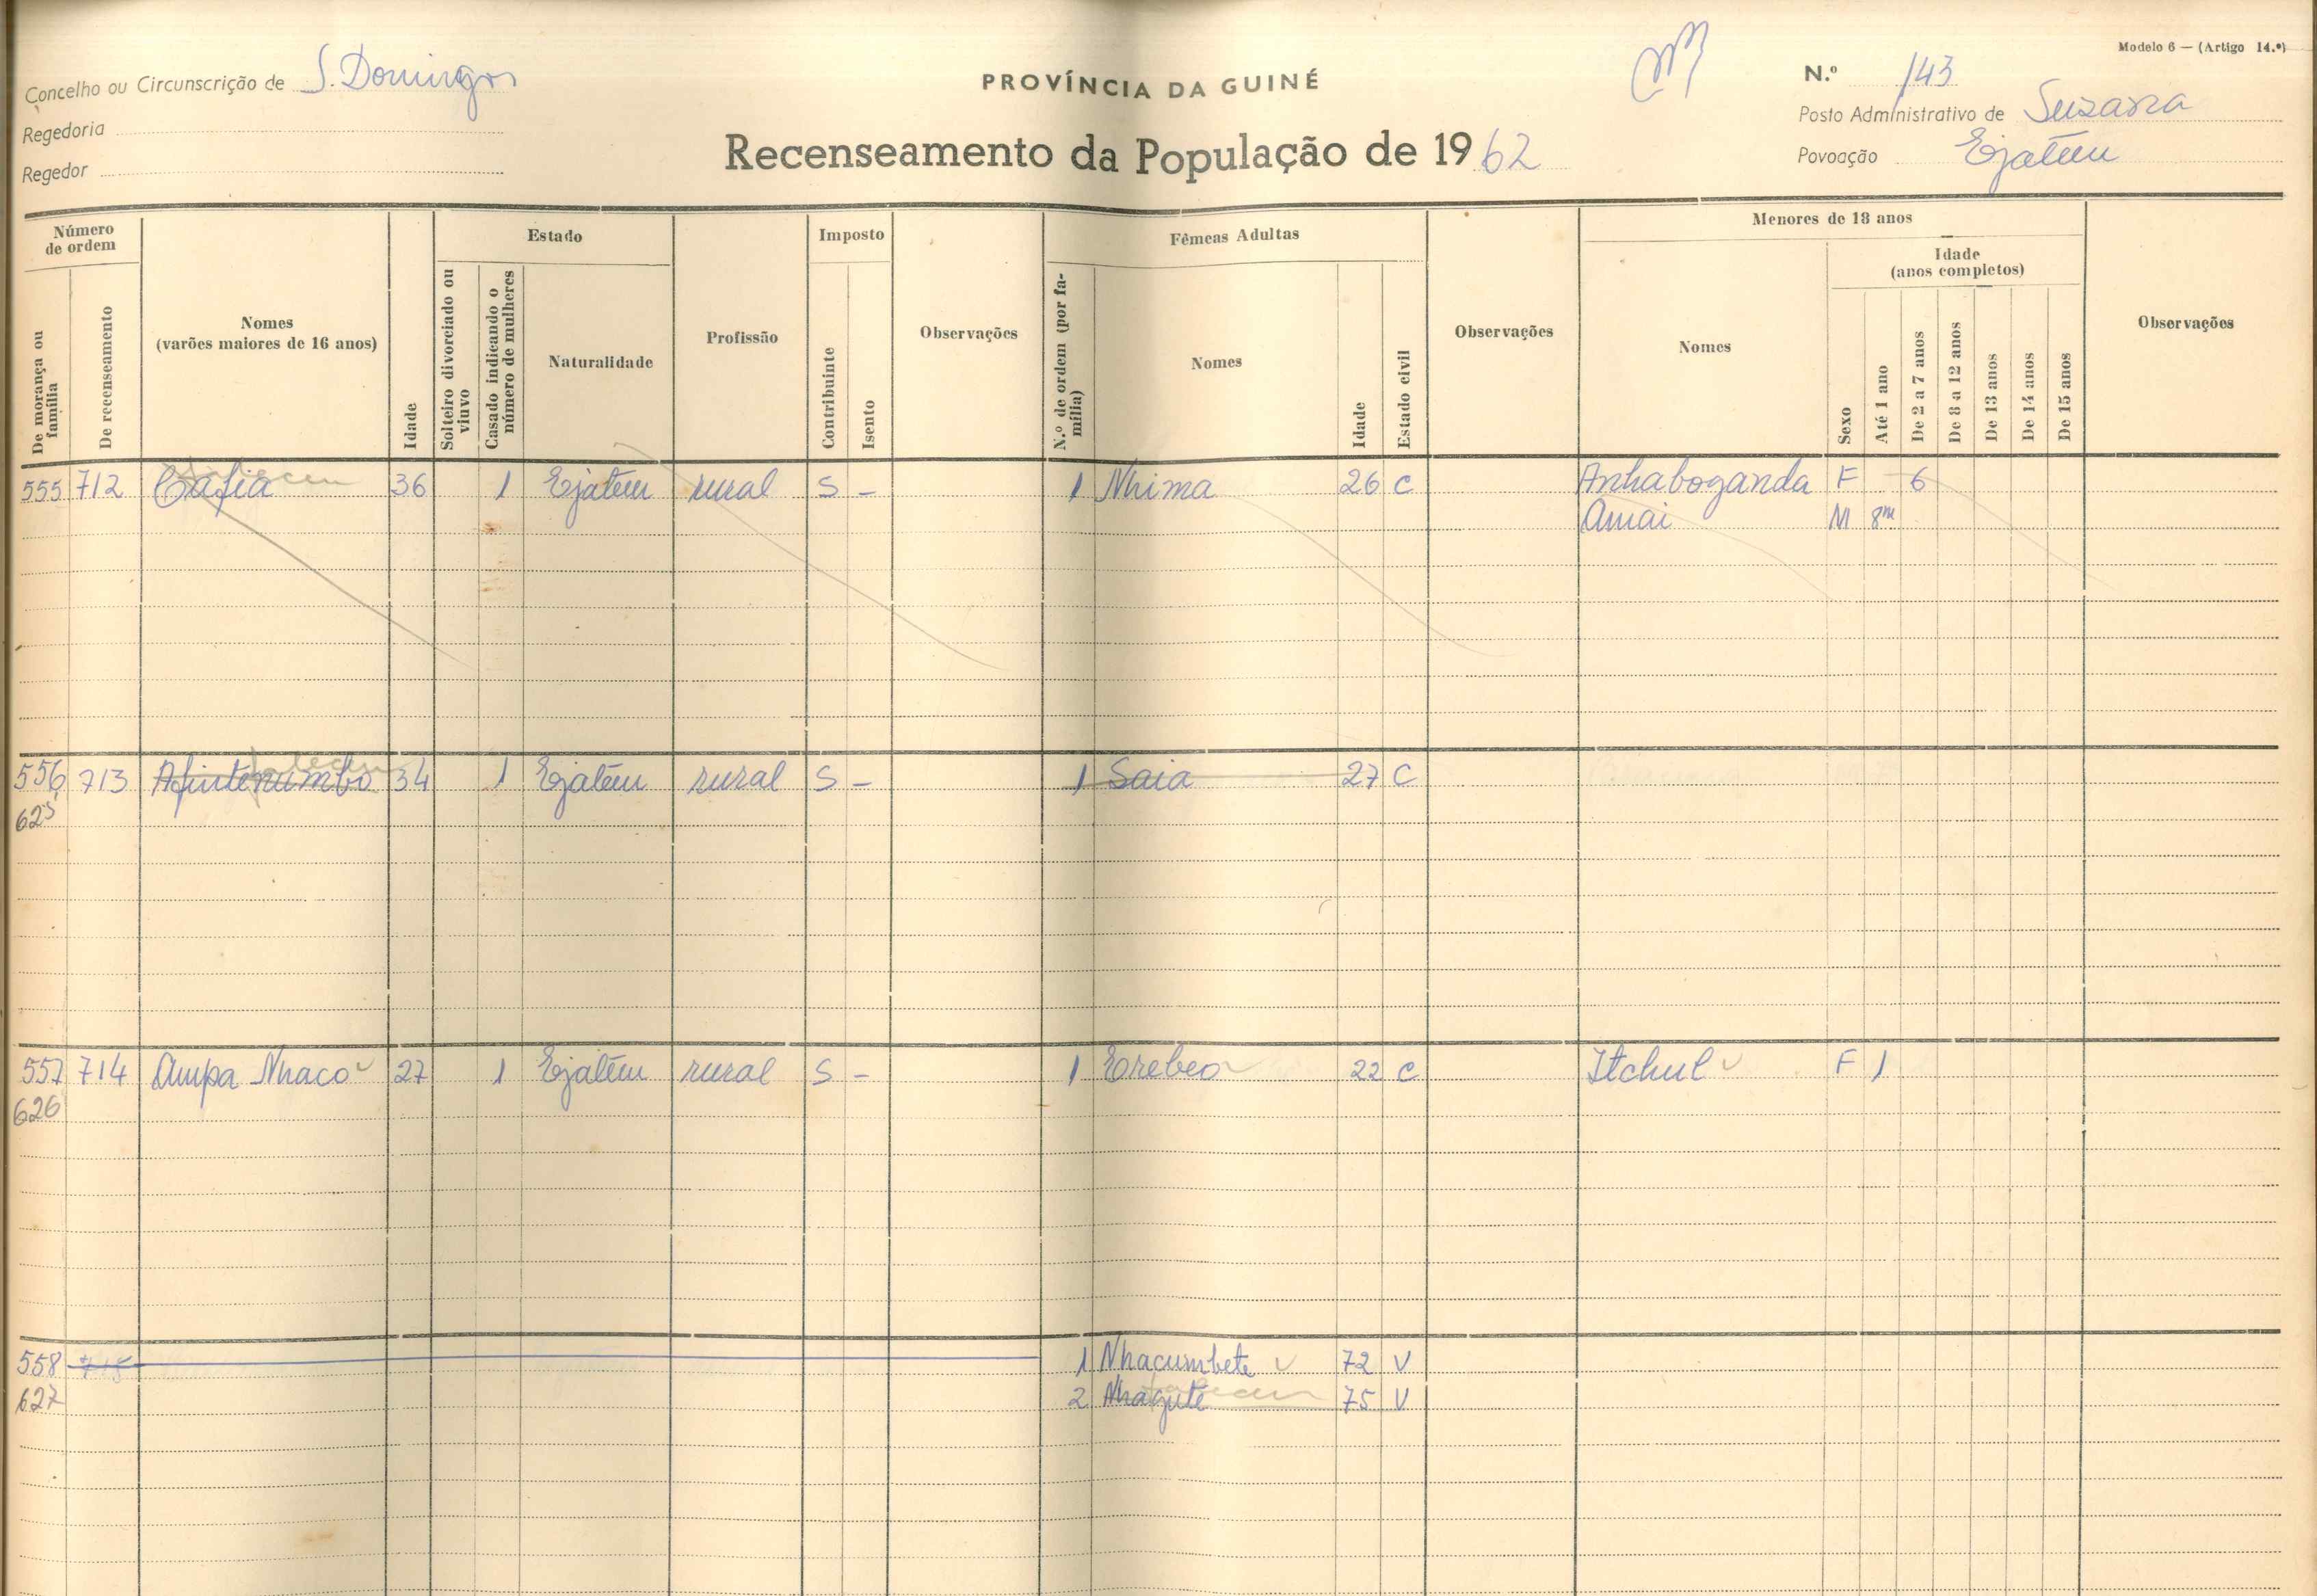 Modelo 6 — (Artigo 14.º)
Concelho ou Circunscrição de S. Domingos
PROVÍNCIA DA GUINÉ
N.º 143
Regedoria
Posto Administrativo de Suzana
Regedor
Recenseamento da População de 1962
Povoação Ejatem
Número de ordem
Estado
Imposto
Fêmeas Adultas
Menores de 18 anos
Idade
(anos completos)
De morança ou família
De recenseamento
Nomes
(varões maiores de 16 anos)
Idade
Solteiro divorciado ou viuvo
Casado indicando o número de mulheres
Naturalidade
Profissão
Contribuinte
Isento
Observações
N.º de ordem (por família)
Nomes
Idade
Estado civil
Observações
Nomes
Sexo
Até 1 ano
De 2 a 7 anos
De 8 a 12 anos
De 13 anos
De 14 anos
De 15 anos
Observações
555 712 Cafia 36 1 Ejatem rural S - 1 Nhima 26 C Anhaboganda F 6
Amai M 8m
556 713 Afintenumbo 34 1 Ejatem rural S - 1 Saia 27 C
625
557 714 Ampa Nhaco 27 1 Ejatem rural S - 1 Erebeo 22 C Itchul F 1
626
558 715 1 Nhacumbete 72 V
627 2 Nhagute 75 V